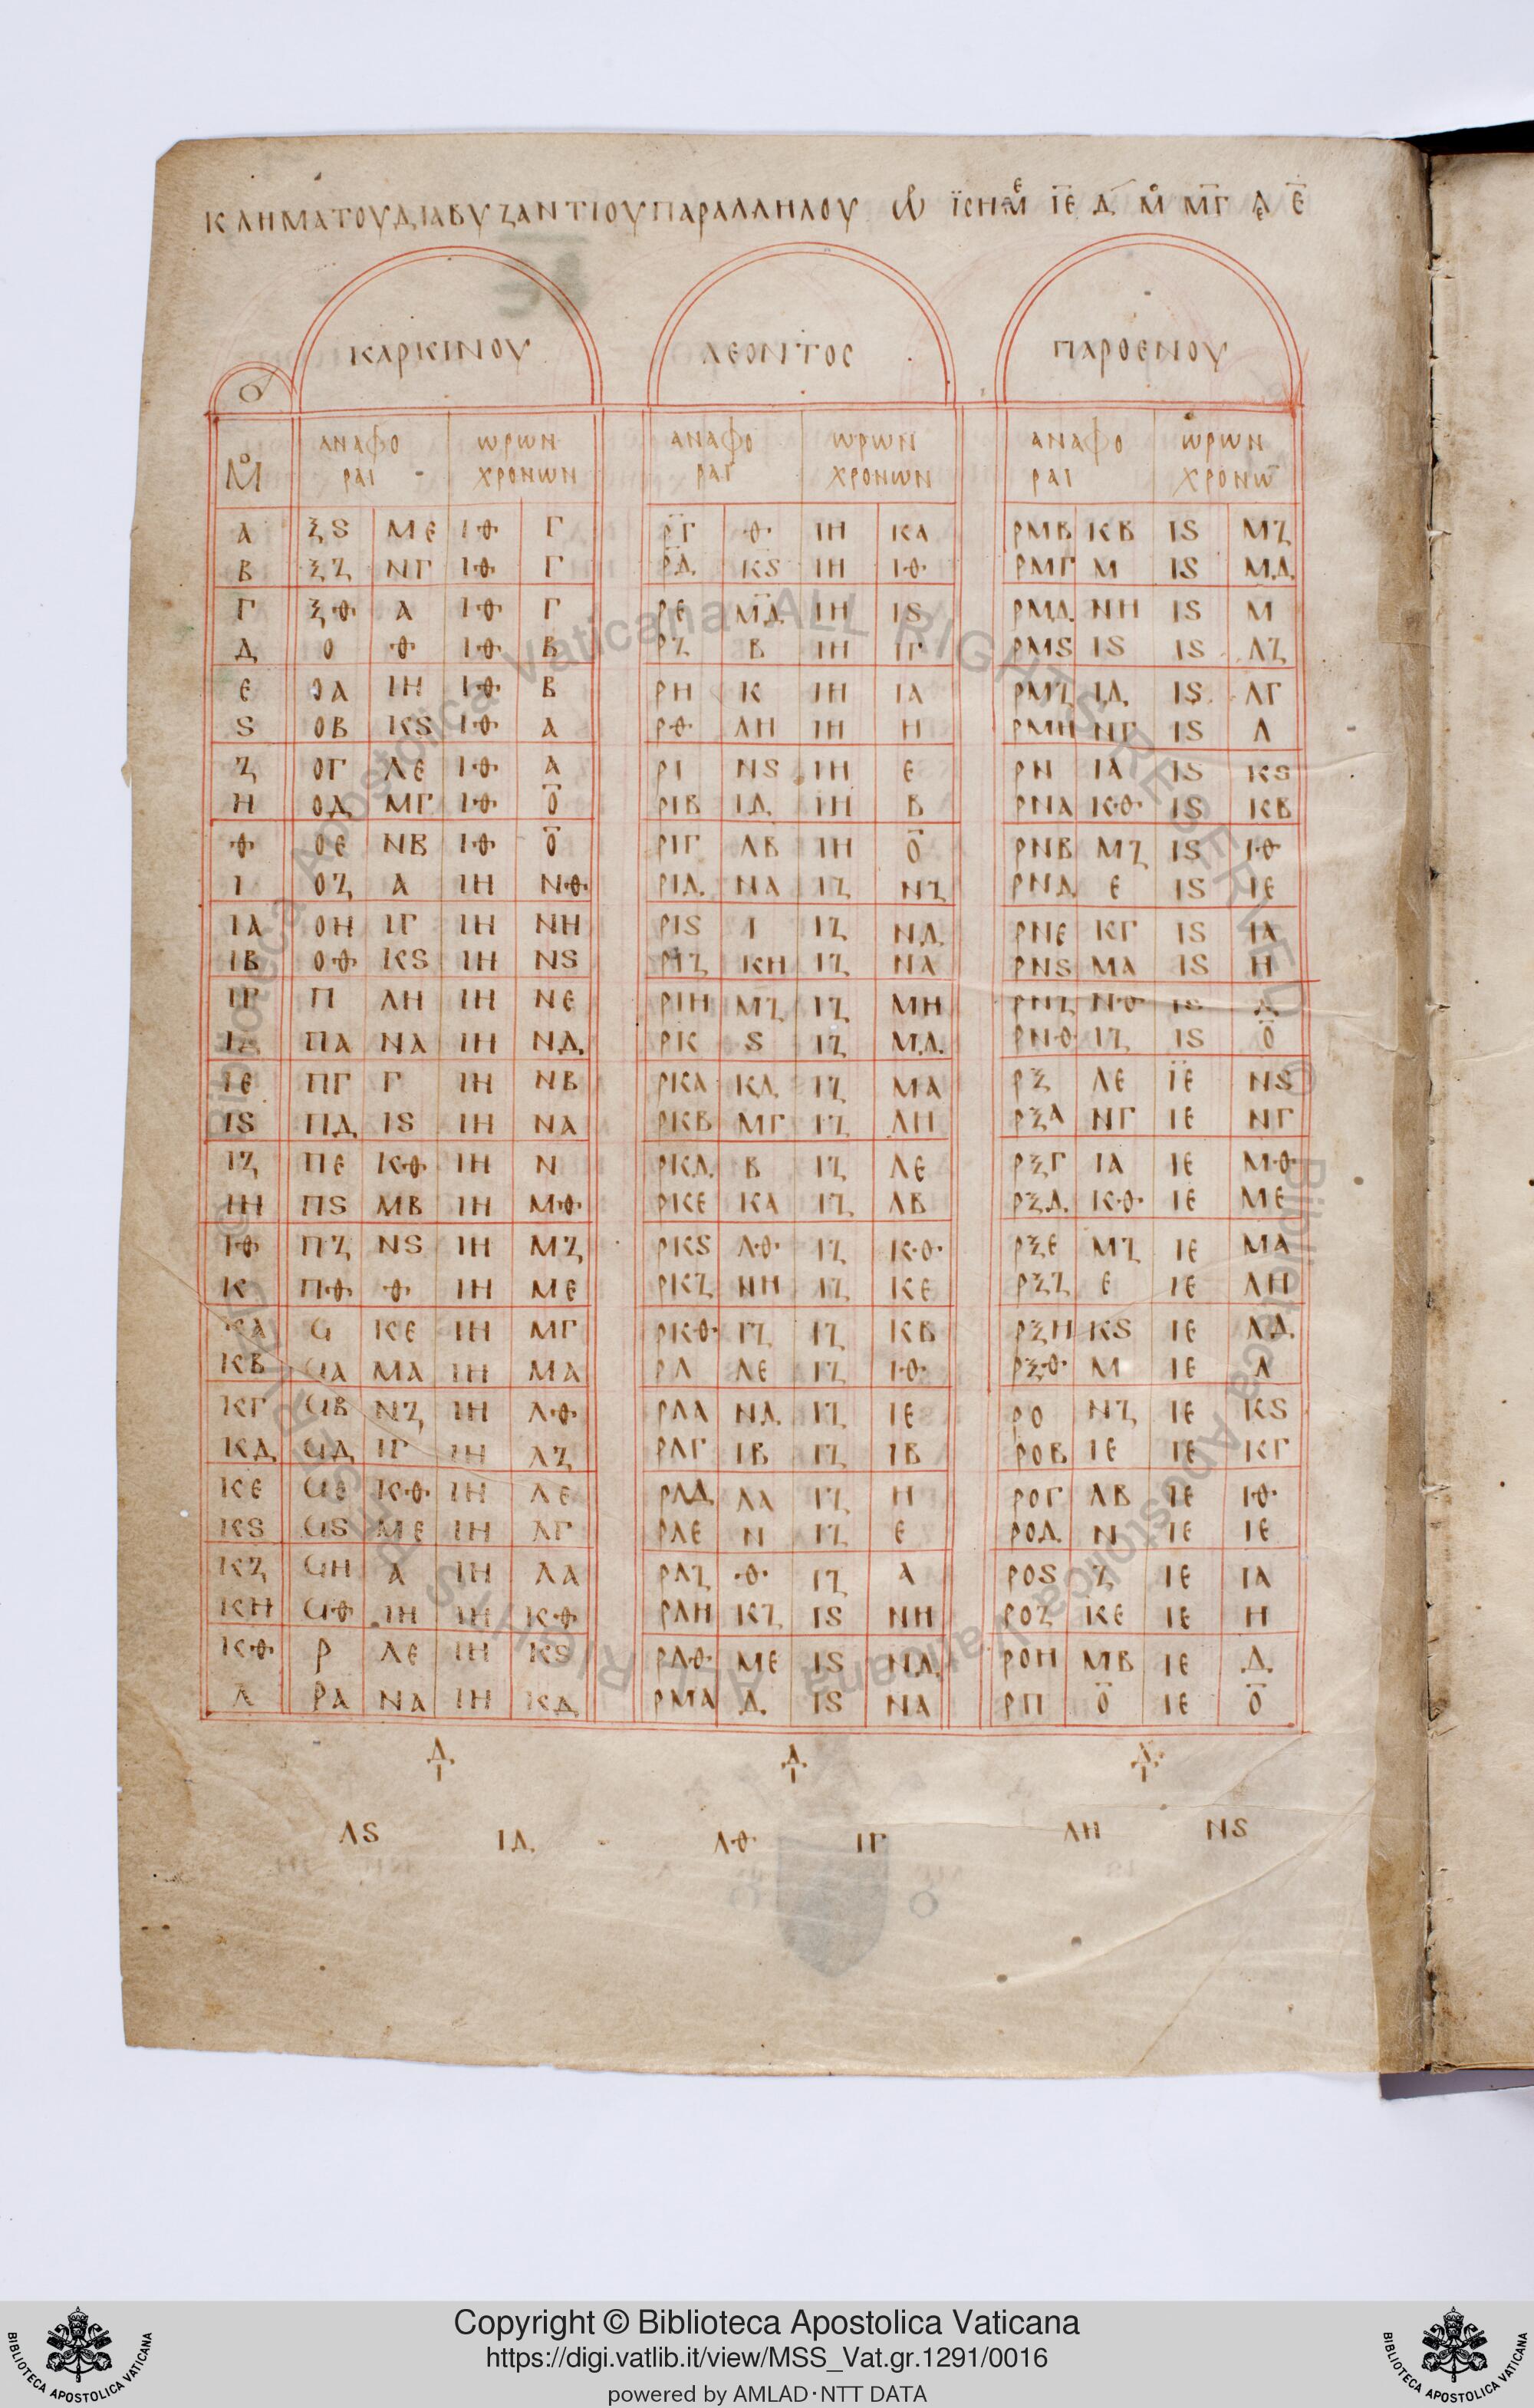 ΚΛΗΜΑΤΟΥΔΙΑΒΥΖΑΝΤΙΟΥΠΑΡΑΛΛΗΛΟΥ ΙΣΗΜ ΙΕ Δ Μ ΜΓ Ε
ΚΑΡΚΙΝΟΥ ΛΕΟΝΤΟΣ ΠΑΡΘΕΝΟΥ
ΑΝΑΦΟ ΩΡΩΝ ΑΝΑΦΟ ΩΡΩΝ ΑΝΑΦΟ ΩΡΩΝ
Μο ΡΑΙ ΧΡΟΝΩΝ ΡΑΙ ΧΡΟΝΩΝ ΡΑΙ ΧΡΟΝΩ
Α ΞϚ ΜΕ ΙΘ Γ ΡΓ Θ ΙΗ ΚΑ ΡΜΒ ΚΒ ΙϚ ΜΖ
Β ΞΖ ΝΓ ΙΘ Γ ΡΔ ΚϚ ΙΗ ΙΘ ΡΜΓ Μ ΙϚ ΜΔ
Γ ΞΘ Α ΙΘ Γ ΡΕ ΜΔ ΙΗ ΙϚ ΡΜΔ ΝΗ ΙϚ Μ
Δ Ο Θ ΙΘ Β ΡΖ Β ΙΗ ΙΓ ΡΜϚ ΙϚ ΙϚ ΛΖ
Ε ΟΑ ΙΗ ΙΘ Β ΡΗ Κ ΙΗ ΙΑ ΡΜΖ ΙΔ ΙϚ ΛΓ
Ϛ ΟΒ ΚϚ ΙΘ Α ΡΘ ΛΗ ΙΗ Η ΡΜΗ ΝΓ ΙϚ Λ
Ζ ΟΓ ΛΕ ΙΘ Α ΡΙ ΝϚ ΙΗ Ε ΡΝ ΙΑ ΙϚ ΚϚ
Η ΟΔ ΜΓ ΙΘ Ο ΡΙΒ ΙΔ ΙΗ Β ΡΝΑ ΚΘ ΙϚ ΚΒ
Θ ΟΕ ΝΒ ΙΘ Ο ΡΙΓ ΛΒ ΙΗ Ο ΡΝΒ ΜΖ ΙϚ ΙΘ
Ι ΟΖ Α ΙΗ ΝΘ ΡΙΔ ΝΑ ΙΖ ΝΖ ΡΝΔ Ε ΙϚ ΙΕ
ΙΑ ΟΗ ΙΓ ΙΗ ΝΗ ΡΙϚ Ι ΙΖ ΝΔ ΡΝΕ ΚΓ ΙϚ ΙΑ
ΙΒ ΟΘ ΚϚ ΙΗ ΝϚ ΡΙΖ ΚΗ ΙΖ ΝΑ ΡΝϚ ΜΑ ΙϚ Η
ΙΓ Π ΛΗ ΙΗ ΝΕ ΡΙΗ ΜΖ ΙΖ ΜΗ ΡΝΖ ΝΘ ΙϚ Δ
ΙΔ ΠΑ ΝΑ ΙΗ ΝΔ ΡΚ Ϛ ΙΖ ΜΔ ΡΝΘ ΙΖ ΙϚ Ο
ΙΕ ΠΓ Γ ΙΗ ΝΒ ΡΚΑ ΚΔ ΙΖ ΜΑ ΡΞ ΛΕ ΙΕ ΝϚ
ΙϚ ΠΔ ΙϚ ΙΗ ΝΑ ΡΚΒ ΜΓ ΙΖ ΛΗ ΡΞΑ ΝΓ ΙΕ ΝΓ
ΙΖ ΠΕ ΚΘ ΙΗ Ν ΡΚΔ Β ΙΖ ΛΕ ΡΞΓ ΙΑ ΙΕ ΜΘ
ΙΗ ΠϚ ΜΒ ΙΗ ΜΘ ΡΚΕ ΚΑ ΙΖ ΛΒ ΡΞΔ ΚΘ ΙΕ ΜΕ
ΙΘ ΠΖ ΝϚ ΙΗ ΜΖ ΡΚϚ ΛΘ ΙΖ ΚΘ ΡΞΕ ΜΖ ΙΕ ΜΑ
Κ ΠΘ Θ ΙΗ ΜΕ ΡΚΖ ΝΗ ΙΖ ΚΕ ΡΞΖ Ε ΙΕ ΛΗ
ΚΑ Ϥ ΚΕ ΙΗ ΜΓ ΡΚΘ ΙΖ ΙΖ ΚΒ ΡΞΗ ΚϚ ΙΕ ΛΔ
ΚΒ ϤΑ ΜΑ ΙΗ ΜΑ ΡΛ ΛΕ ΙΖ ΙΘ ΡΞΘ Μ ΙΕ Λ
ΚΓ ϤΒ ΝΖ ΙΗ ΛΘ ΡΛΑ ΝΔ ΙΖ ΙΕ ΡΟ ΝΖ ΙΕ ΚϚ
ΚΔ ϤΔ ΙΓ ΙΗ ΛΖ ΡΛΓ ΙΒ ΙΖ ΙΒ ΡΟΒ ΙΕ ΙΕ ΚΓ
ΚΕ ϤΕ ΚΘ ΙΗ ΛΕ ΡΛΔ ΛΑ ΙΖ Η ΡΟΓ ΛΒ ΙΕ ΙΘ
ΚϚ ϤϚ ΜΕ ΙΗ ΛΓ ΡΛΕ Ν ΙΖ Ε ΡΟΔ Ν ΙΕ ΙΕ
ΚΖ ϤΗ Α ΙΗ ΛΑ ΡΛΖ Θ ΙΖ Α ΡΟϚ Ζ ΙΕ ΙΑ
ΚΗ ϤΘ ΙΗ ΙΗ ΚΘ ΡΛΗ ΚΖ ΙϚ ΝΗ ΡΟΖ ΚΕ ΙΕ Η
ΚΘ Ρ ΛΕ ΙΗ ΚϚ ΡΛΘ ΜΕ ΙϚ ΝΔ ΡΟΗ ΜΒ ΙΕ Δ
Λ ΡΑ ΝΑ ΙΗ ΚΔ ΡΜΑ Δ ΙϚ ΝΑ ΡΠ Ο ΙΕ Ο
ΛϚ ΙΔ ΛΘ ΙΓ ΛΗ ΝϚ
Copyright © Biblioteca Apostolica Vaticana
https://digi.vatlib.it/view/MSS_Vat.gr.1291/0016
powered by AMLAD·NTT DATA